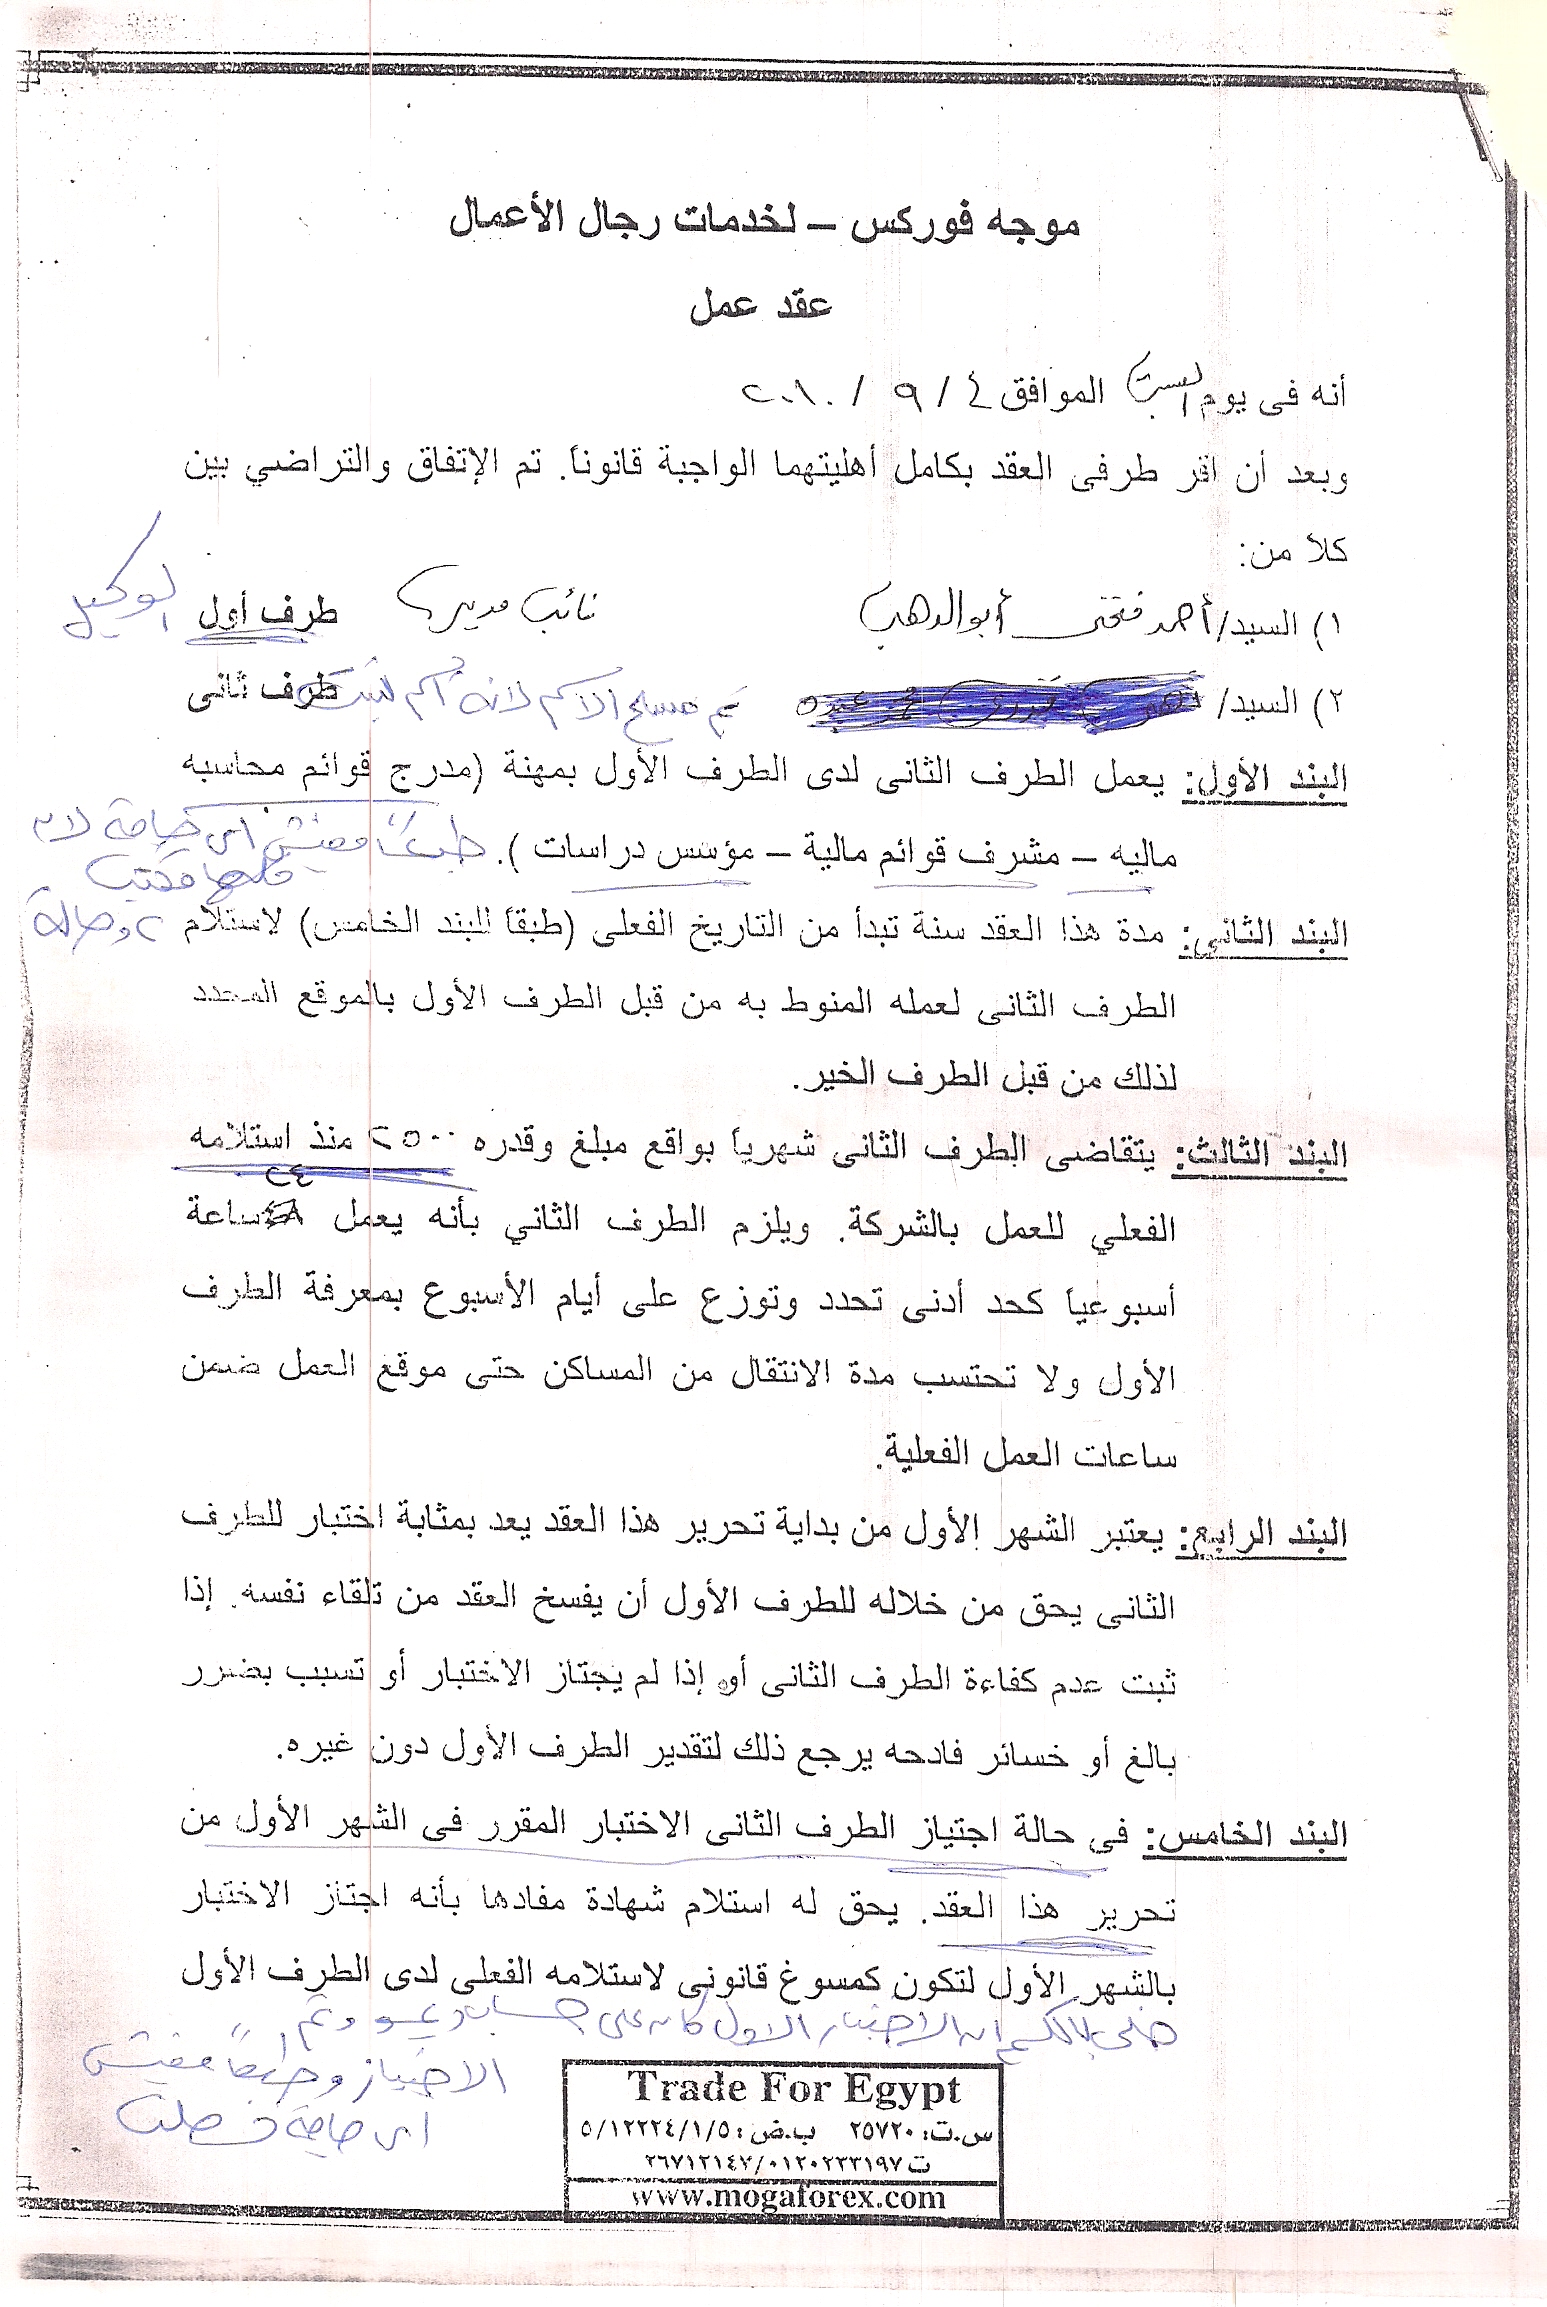 موجه فوركس – لخدمات رجال الأعمال
عقد عمل
أنه فى يوم السبت الموافق ٤ / ٩ / ٢٠١٠
وبعد أن اقر طرفى العقد بكامل أهليتهما الواجبة قانوناً. تم الإتفاق والتراضي بين
كلاً من:
١) السيد/ أحمد فتحى أبو الدهب نائب مديرها طرف أول الوكيل
٢) السيد/ تم مسح الاسم لانه طرف ثانى
البند الأول: يعمل الطرف الثانى لدى الطرف الأول بمهنة (مدرج قوائم محاسبه
ماليه – مشرف قوائم مالية – مؤسس دراسات ). طبعاً مفيش اى حاجة لان
كلها مكتب
وصالة
البند الثانى: مدة هذا العقد سنة تبدأ من التاريخ الفعلى (طبقاً للبند الخامس) لاستلام
الطرف الثانى لعمله المنوط به من قبل الطرف الأول بالموقع المحدد
لذلك من قبل الطرف الخير.
البند الثالث: يتقاضى الطرف الثانى شهرياً بواقع مبلغ وقدره ٢٥٠٠ منذ استلامه
٢٤
الفعلي للعمل بالشركة. ويلزم الطرف الثاني بأنه يعمل ساعة
أسبوعياً كحد أدنى تحدد وتوزع على أيام الأسبوع بمعرفة الطرف
الأول ولا تحتسب مدة الانتقال من المساكن حتى موقع العمل ضمن
ساعات العمل الفعلية.
البند الرابع: يعتبر الشهر الأول من بداية تحرير هذا العقد يعد بمثابة اختبار للطرف
الثانى يحق من خلاله للطرف الأول أن يفسخ العقد من تلقاء نفسه. إذا
ثبت عدم كفاءة الطرف الثانى أو إذا لم يجتاز الاختبار أو تسبب بضرر
بالغ أو خسائر فادحه يرجع ذلك لتقدير الطرف الأول دون غيره.
البند الخامس: فى حالة اجتياز الطرف الثانى الاختبار المقرر فى الشهر الأول من
تحرير هذا العقد. يحق له استلام شهادة مفادها بأنه اجتاز الاختبار
بالشهر الأول لتكون كمسوغ قانونى لاستلامه الفعلى لدى الطرف الأول
خلى بالكم ان الاختبار الاول كان على حساب ديمو وتم
الاجتياز وطبعاً مفيش
اى حاجة حصلت
Trade For Egypt
س.ت: ٢٥٧٢٠ ب.ض: ٥/١٢٢٢٤/١/٥
ت ٢٦٧١٢١٤٧/٠١٢٠٢٢٣١٩٧
www.mogaforex.com